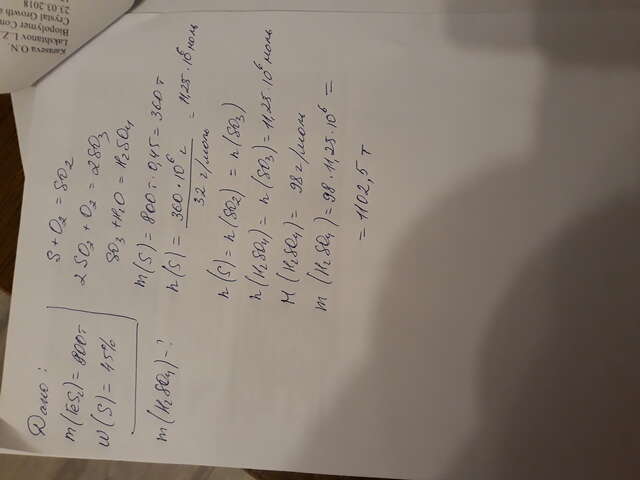 Дано:
m(FeS₂)=800т
W(S)=45%
m(H₂SO₄)-?
S+O₂=SO₂
2SO₂+O₂=2SO₃
SO₃+H₂O=H₂SO₄
m(S)=800т·0,45=360т
n(S)=360·10⁶г/32г/моль=11,25·10⁶моль
n(S)=n(SO₂)=n(SO₃)
n(H₂SO₄)=n(SO₃)=11,25·10⁶моль
M(H₂SO₄)=98г/моль
m(H₂SO₄)=98·11,25·10⁶=
=1102,5т
Karaseva O.N.
Lakshtanov L.Z.
Biopolymer Con
Crystal Growth a
23.03.2018